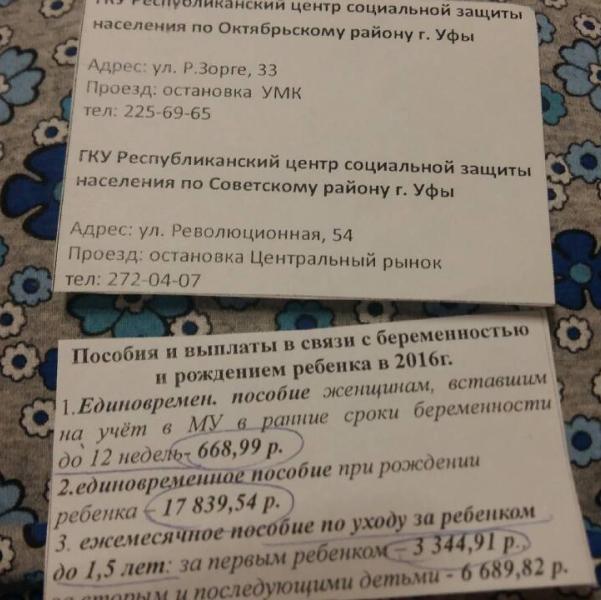 ГКУ Республиканский центр социальной защиты
населения по Октябрьскому району г. Уфы
Адрес: ул. Р.Зорге, 33
Проезд: остановка УМК
тел: 225-69-65
ГКУ Республиканский центр социальной защиты
населения по Советскому району г. Уфы
Адрес: ул. Революционная, 54
Проезд: остановка Центральный рынок
тел: 272-04-07
Пособия и выплаты в связи с беременностью
и рождением ребенка в 2016г.
1.Единовремен. пособие женщинам, вставшим
на учёт в МУ в ранние сроки беременности
до 12 недель- 668,99 р.
2.единовременное пособие при рождении
ребенка – 17 839,54 р.
3. ежемесячное пособие по уходу за ребенком
до 1,5 лет: за первым ребенком – 3 344,91 р.,
за вторым и последующими детьми - 6 689,82 р.